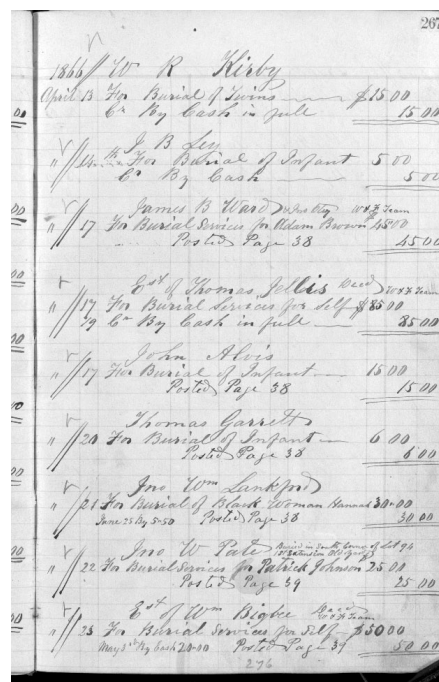 267
1866 W R Kirby
April 13 For Burial of Twins $15 00
Cr By Cash in full 15 00
J B Ley
" 14th For Burial of Infant 5 00
Cr By Cash 5 00
James B Ward W & F Team
" 17 For Burial Services for Adam Brown 45 00
Posted Page 38 45 00
Est of Thomas Jellis Decd W & F Team
" 17 For Burial Services for Self $85 00
19 Cr By Cash in full 85 00
John Alvis
" 17 For Burial of Infant 15 00
Posted Page 38 15 00
Thomas Garrett
" 20 For Burial of Infant 6 00
Posted Page 38 6 00
Jno Wm Lankford
" 21 For Burial of Black Woman Hannah 30 00
June 25 By 5-50 Posted Page 38 30 00
Jno W Pate Buried in South Corner of Lot 94
1st Extension Old
" 22 For Burial Services for Patrick Johnson 25 00
Posted Page 39 25 00
Est of Wm Bigbee Decd W & F Team
" 23 For Burial Services for Self $50 00
May 3rd By Cash 20-00 Posted Page 39 50 00
276